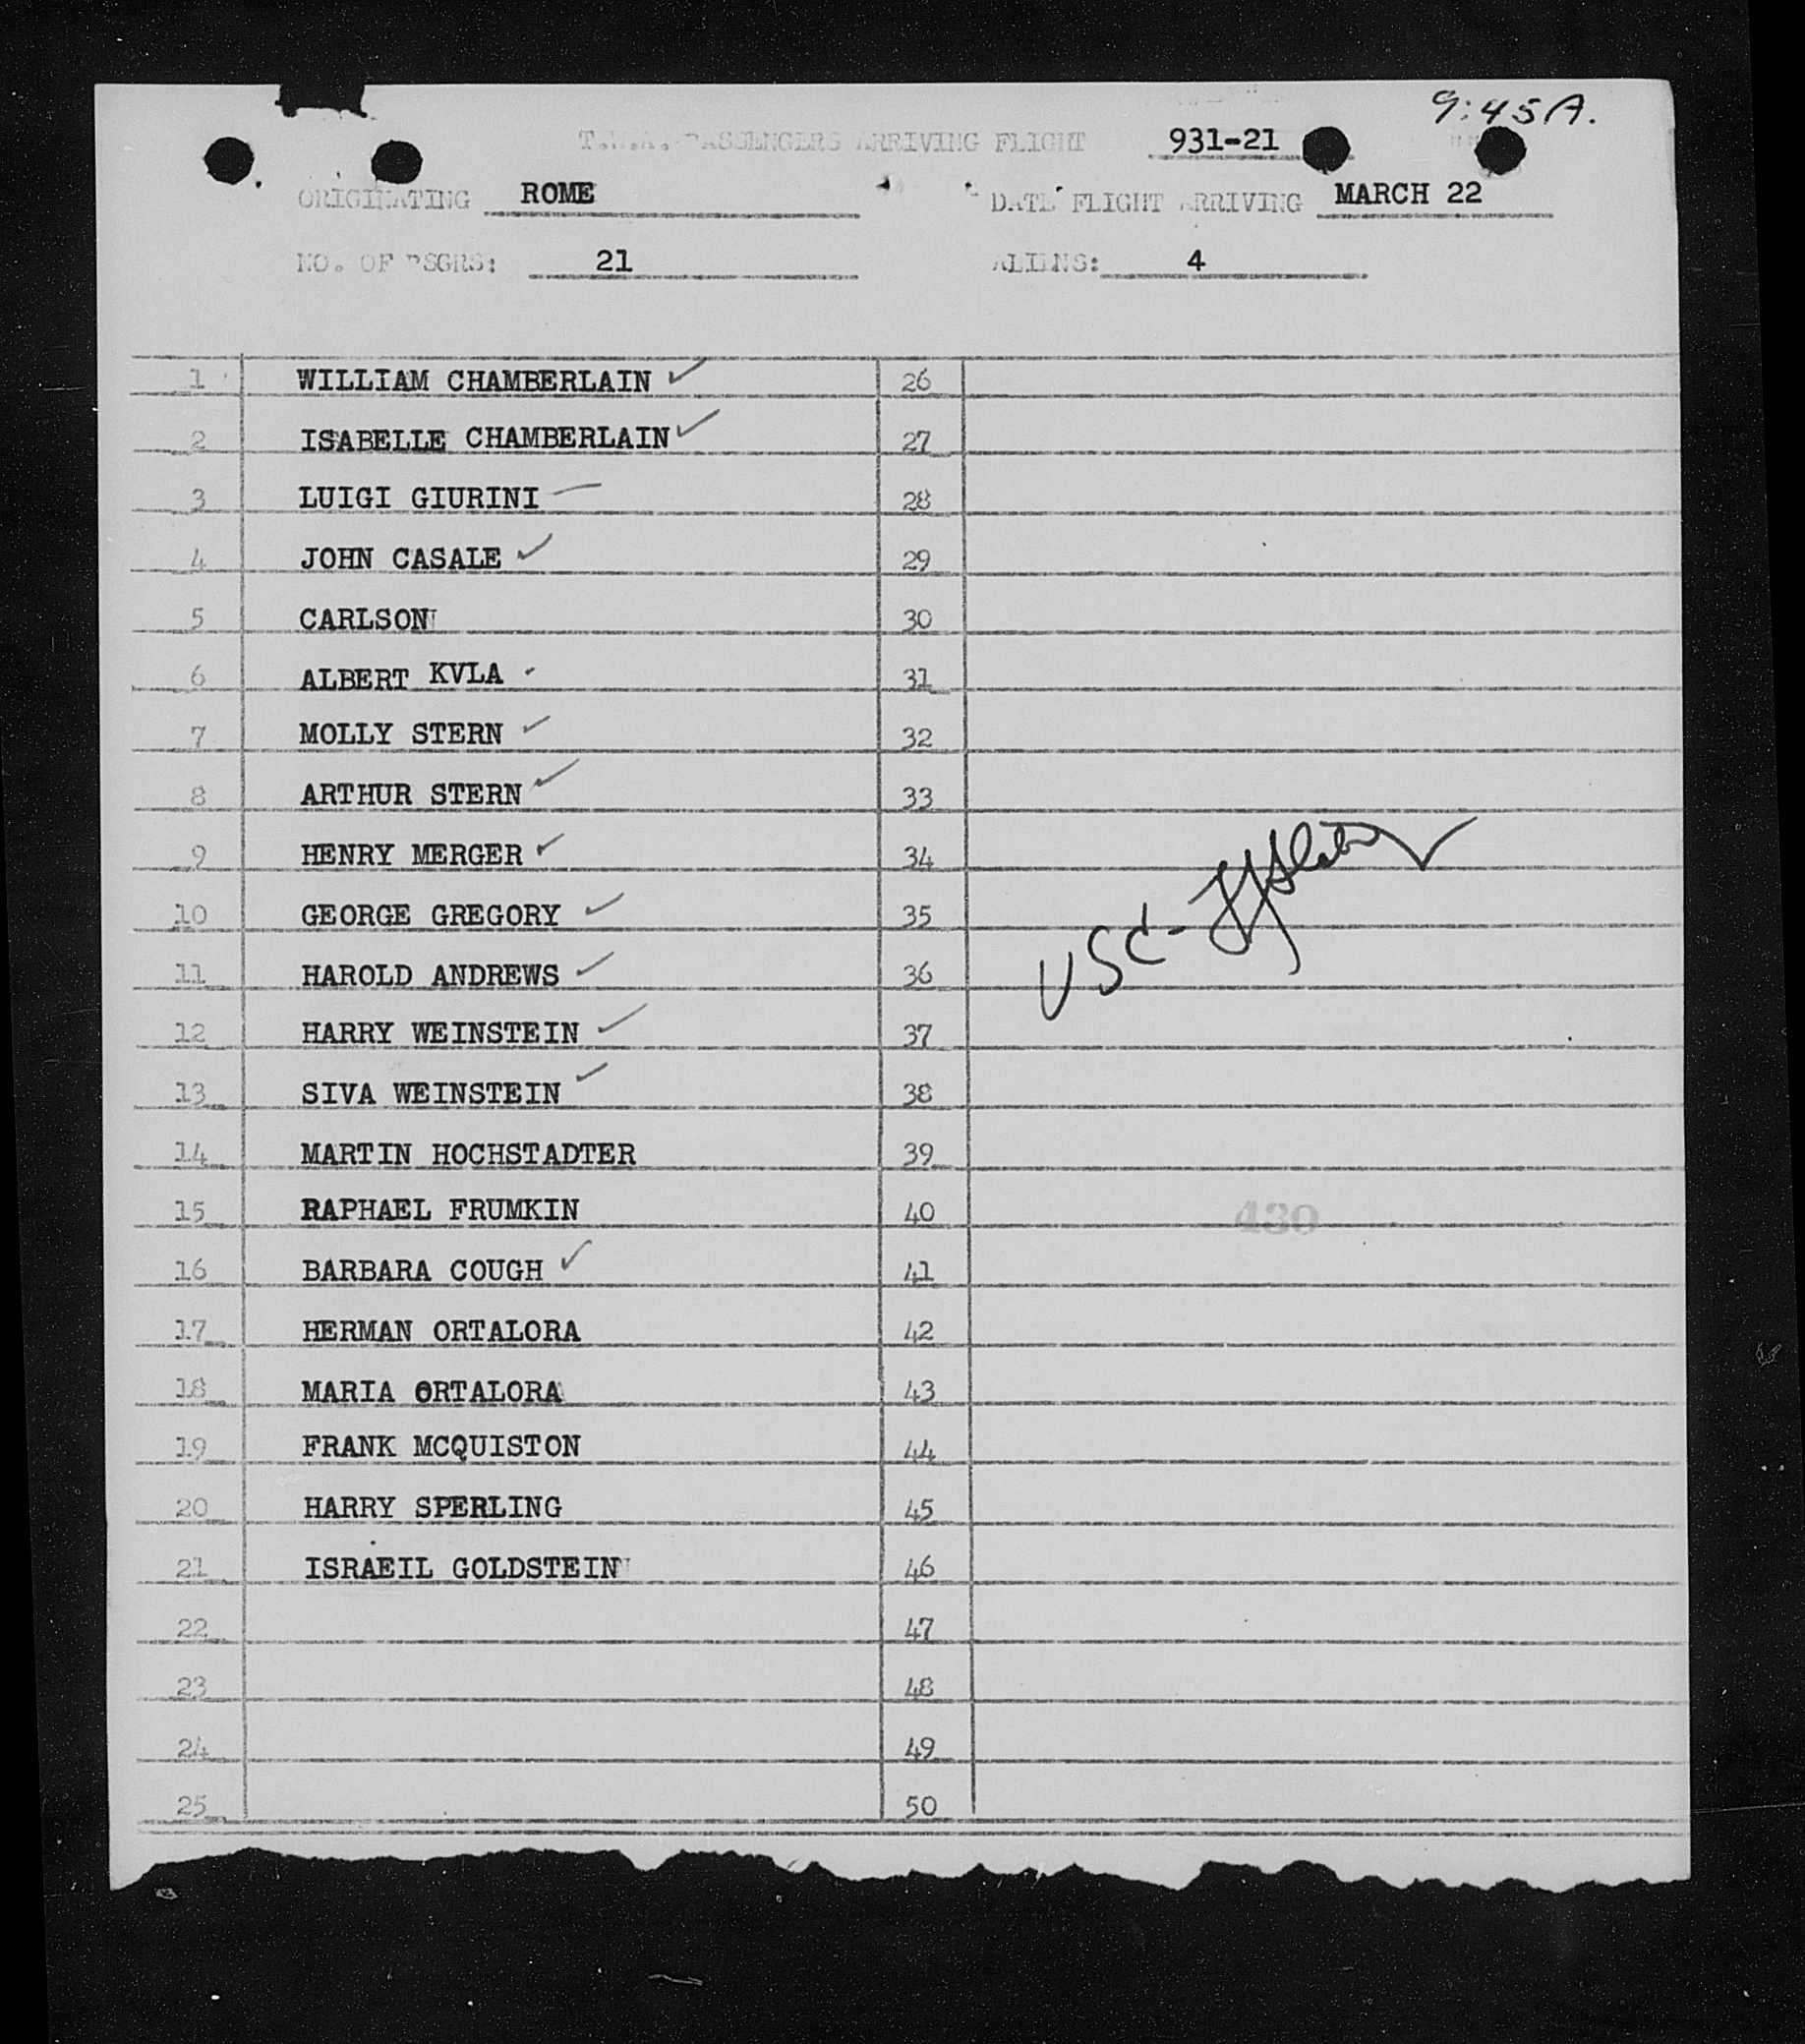 9:45A.
T.W.A. PASSENGERS ARRIVING FLIGHT 931-21
ORIGINATING ROME DATE FLIGHT ARRIVING MARCH 22
NO. OF PSGRS: 21 ALIENS: 4
1 WILLIAM CHAMBERLAIN ✓ 26
2 ISABELLE CHAMBERLAIN ✓ 27
3 LUIGI GIURINI 28
4 JOHN CASALE ✓ 29
5 CARLSON 30
6 ALBERT KVLA 31
7 MOLLY STERN ✓ 32
8 ARTHUR STERN ✓ 33
9 HENRY MERGER ✓ 34
10 GEORGE GREGORY ✓ 35
11 HAROLD ANDREWS ✓ 36
USC-
12 HARRY WEINSTEIN ✓ 37
13 SIVA WEINSTEIN ✓ 38
14 MARTIN HOCHSTADTER 39
15 RAPHAEL FRUMKIN 40 430
16 BARBARA COUGH ✓ 41
17 HERMAN ORTALORA 42
18 MARIA ORTALORA 43
19 FRANK MCQUISTON 44
20 HARRY SPERLING 45
21 ISRAEIL GOLDSTEIN 46
22 47
23 48
24 49
25 50